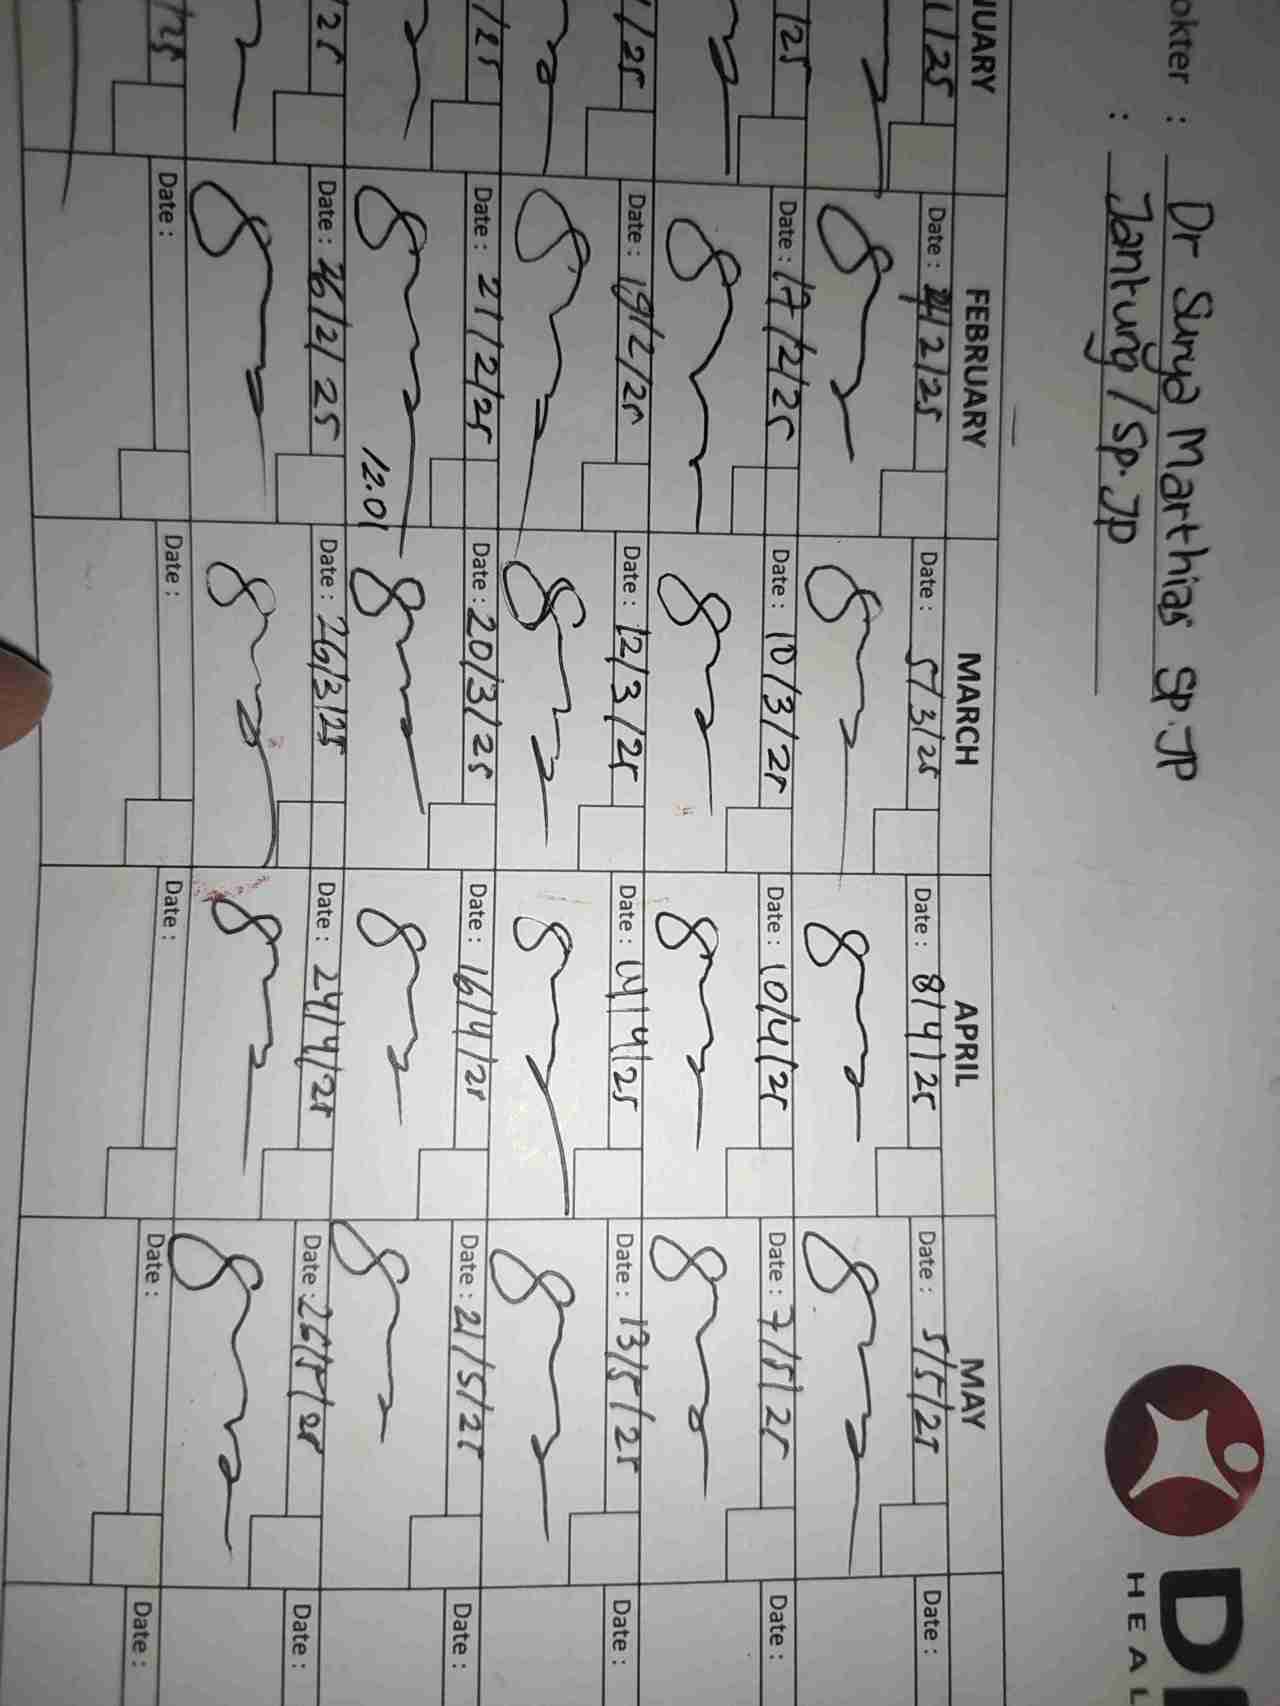 okter : Dr Surya Marthias Sp.JP
: Jantung / Sp.JP
D
HEAL
NUARY FEBRUARY MARCH APRIL MAY
1/25 Date : /2/25 Date : 5/3/25 Date : 8/4/25 Date : 5/5/25 Date :
/25 Date : 17/2/25 Date : 10/3/25 Date : 10/4/25 Date : 7/5/25 Date :
1/25 Date : 19/2/25 Date : 12/3/25 Date : 14/4/25 Date : 13/5/25 Date :
/25 Date : 21/2/25 Date : 20/3/25 Date : 16/4/25 Date : 21/5/25 Date :
12.01
/25 Date : 26/2/25 Date : 26/3/25 Date : 24/4/25 Date : 26/5/25 Date :
/25 Date : Date : Date : Date : Date :